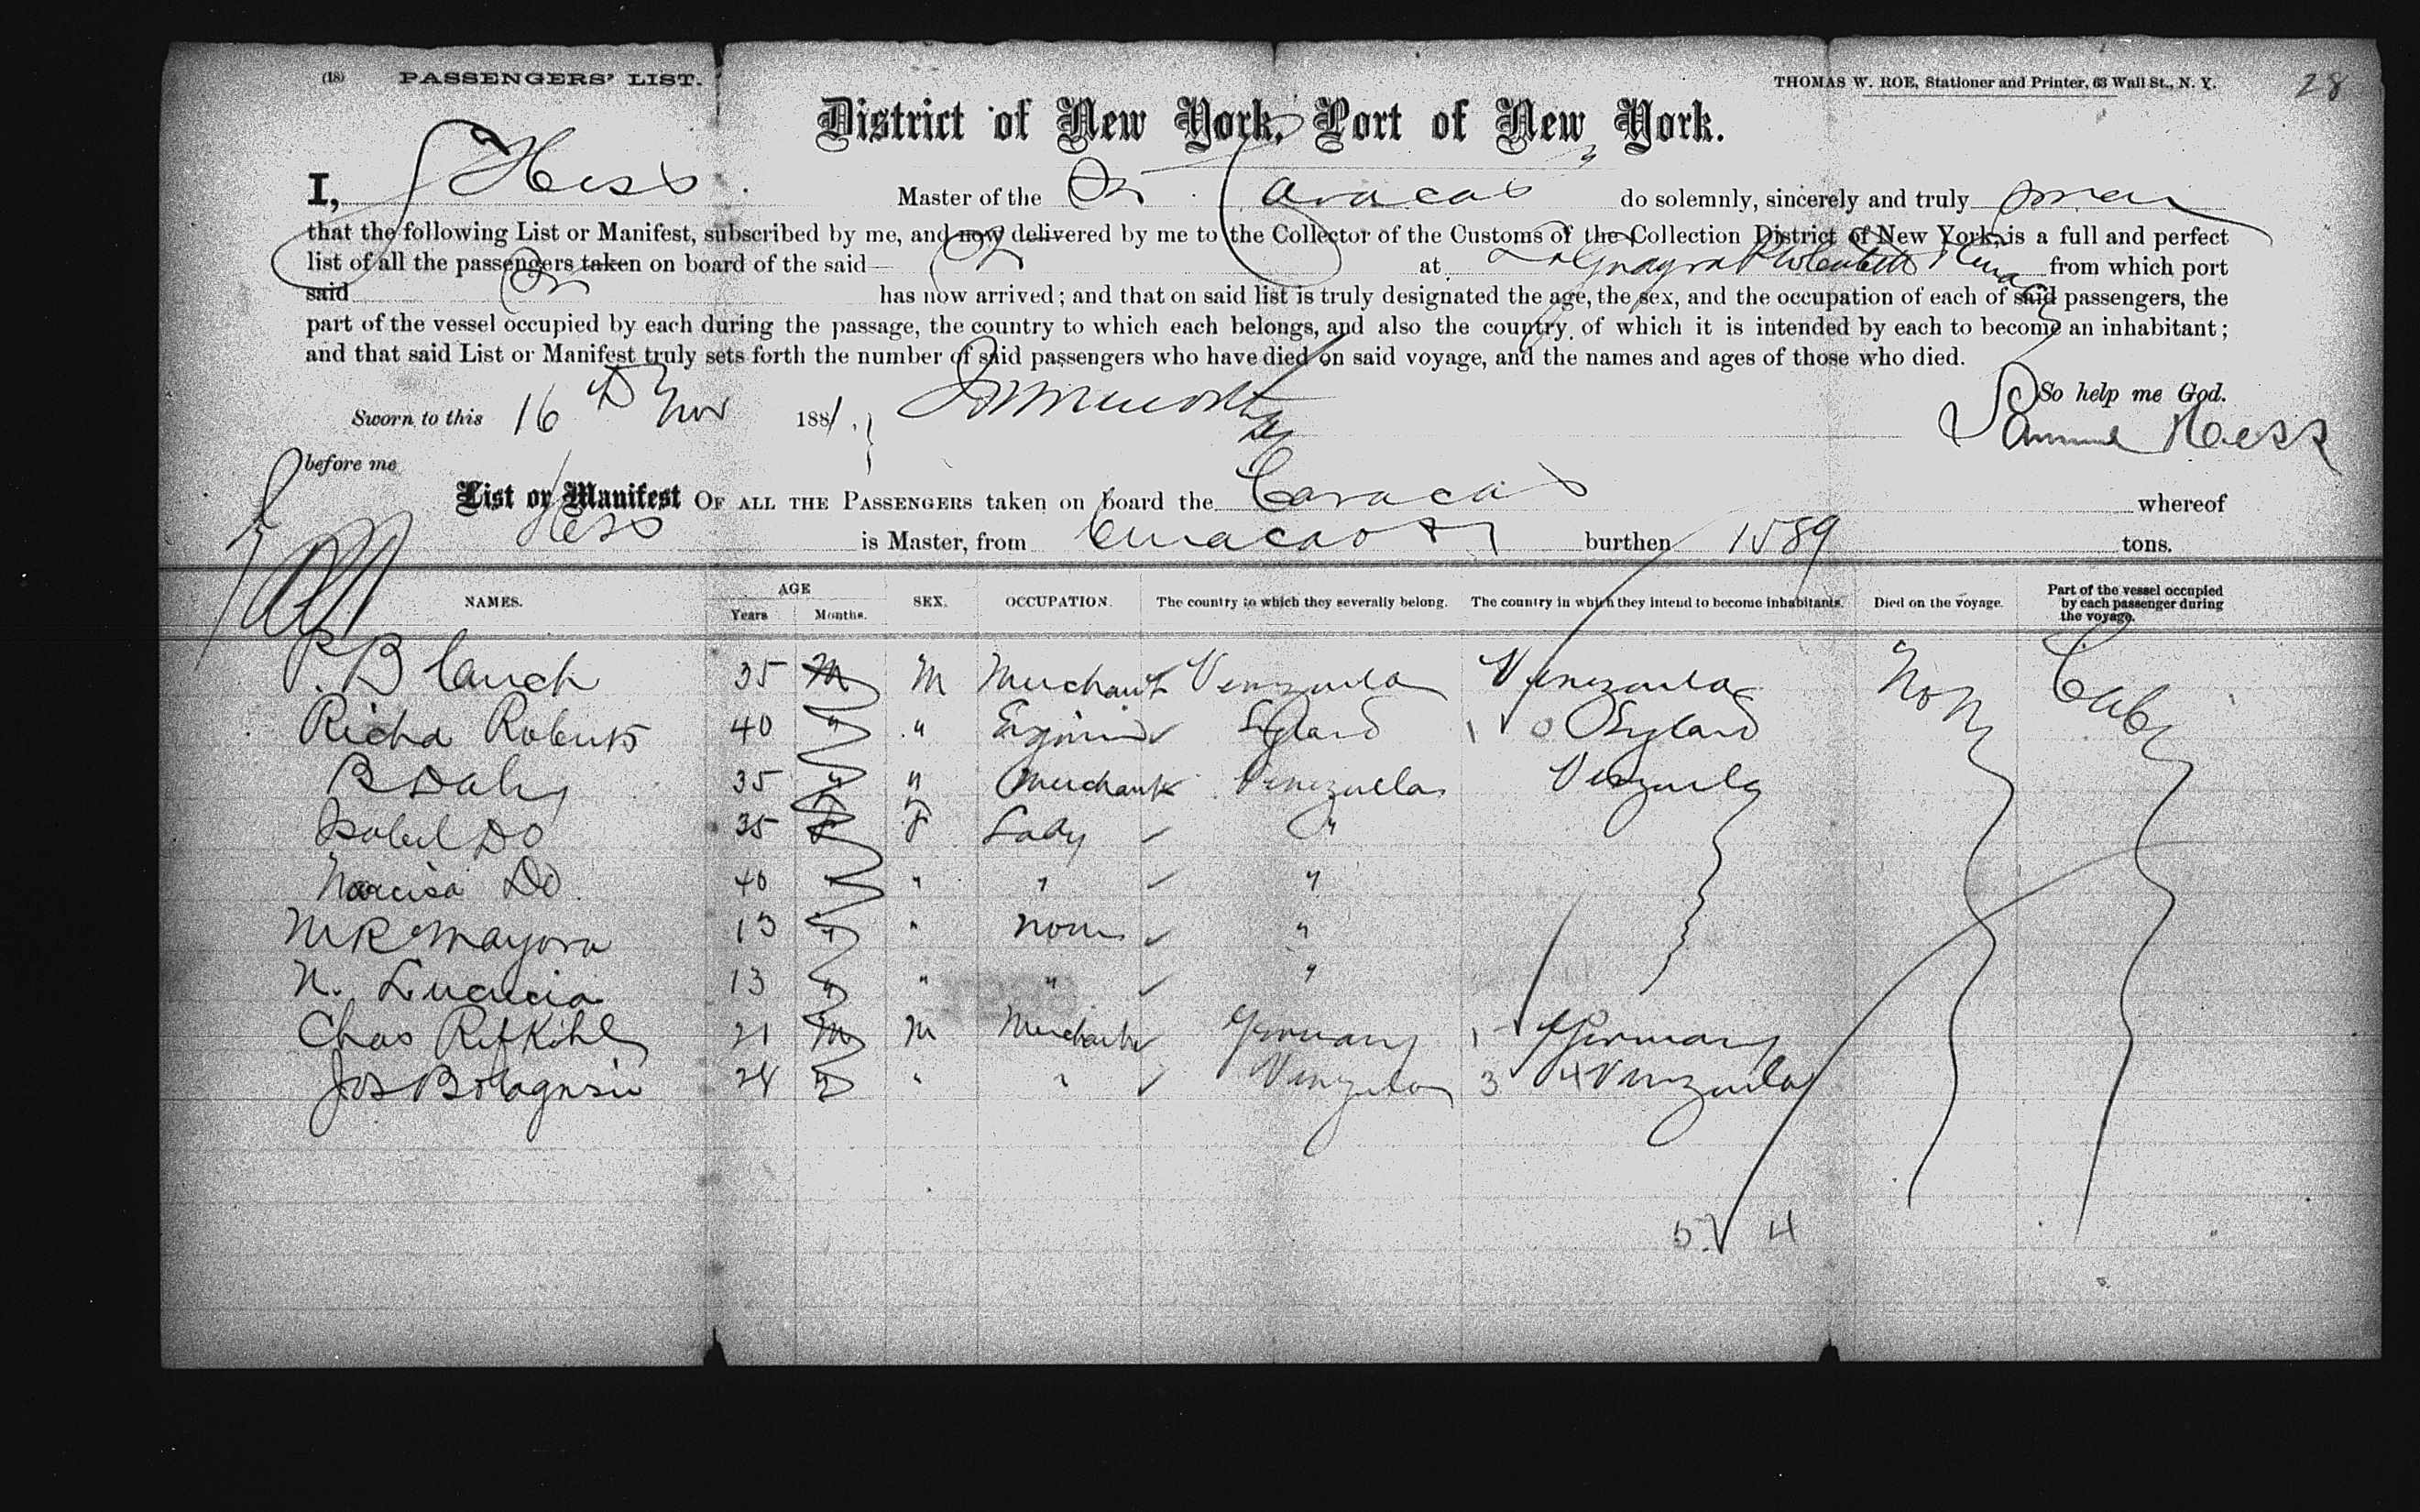 (18) PASSENGERS' LIST.
THOMAS W. ROE, Stationer and Printer, 63 Wall St., N. Y.
28
District of New York, Port of New York.
I, S Hess Master of the Str Caracas do solemnly, sincerely and truly swear
that the following List or Manifest, subscribed by me, and now delivered by me to the Collector of the Customs of the Collection District of New York, is a full and perfect
list of all the passengers taken on board of the said Str at LaGuayra from which port
said Str has now arrived; and that on said list is truly designated the age, the sex, and the occupation of each of said passengers, the
part of the vessel occupied by each during the passage, the country to which each belongs, and also the country of which it is intended by each to become an inhabitant;
and that said List or Manifest truly sets forth the number of said passengers who have died on said voyage, and the names and ages of those who died.
So help me God.
Sworn to this 16th Nov 1881.
Samuel Hess
before me
List or Manifest OF ALL THE PASSENGERS taken on board the Caracas whereof
Hess is Master, from Curacao burthen 1589 tons.
NAMES. AGE Years Months. SEX. OCCUPATION. The country to which they severally belong. The country in which they intend to become inhabitants. Died on the voyage. Part of the vessel occupied by each passenger during the voyage.
P. Blanch 35 M M Merchant Venezuela Venezuela
Richd Roberts 40 " " Engineer England 1 0 England
B Daly 35 " " Merchant Venezuela Venezuela
Isabel Do 35 F F Lady "
Narcisa Do 40 " " " "
M R Mayora 13 " " None "
N. Lucrecia 13 " " " "
Chas 21 M M Merchant Germany 1 Germany
Jos 28 " " " Venezuela 3 4 Venezuela
5 4